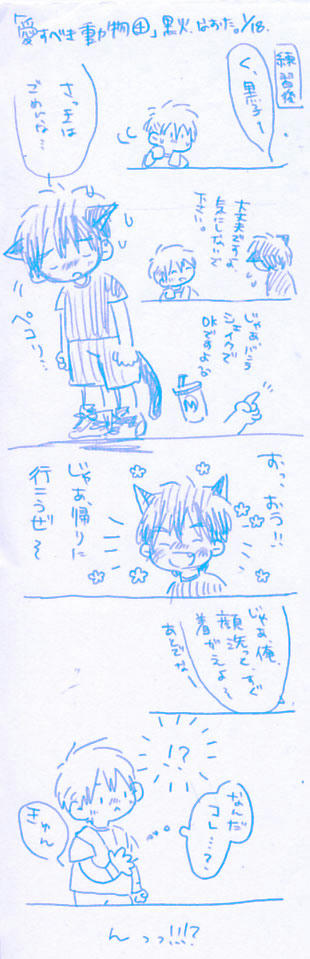 「愛すべき動物④」黒火.なおた。1/18.
練習後
く、黒子ー
さっきは
ごめんな…
ペコリ…
大丈夫ですよ、
気にしないで
下さい。
じゃあバニラ
シェイクで
OKですよな
M
おっ、おう!!
じゃあ、帰りに
行こうぜ〜
じゃあ、俺、
顔洗って、すぐ
着がえよ〜
あとでなー
!?
なんだ
コレ…?
きゅん
んっっ!!!?